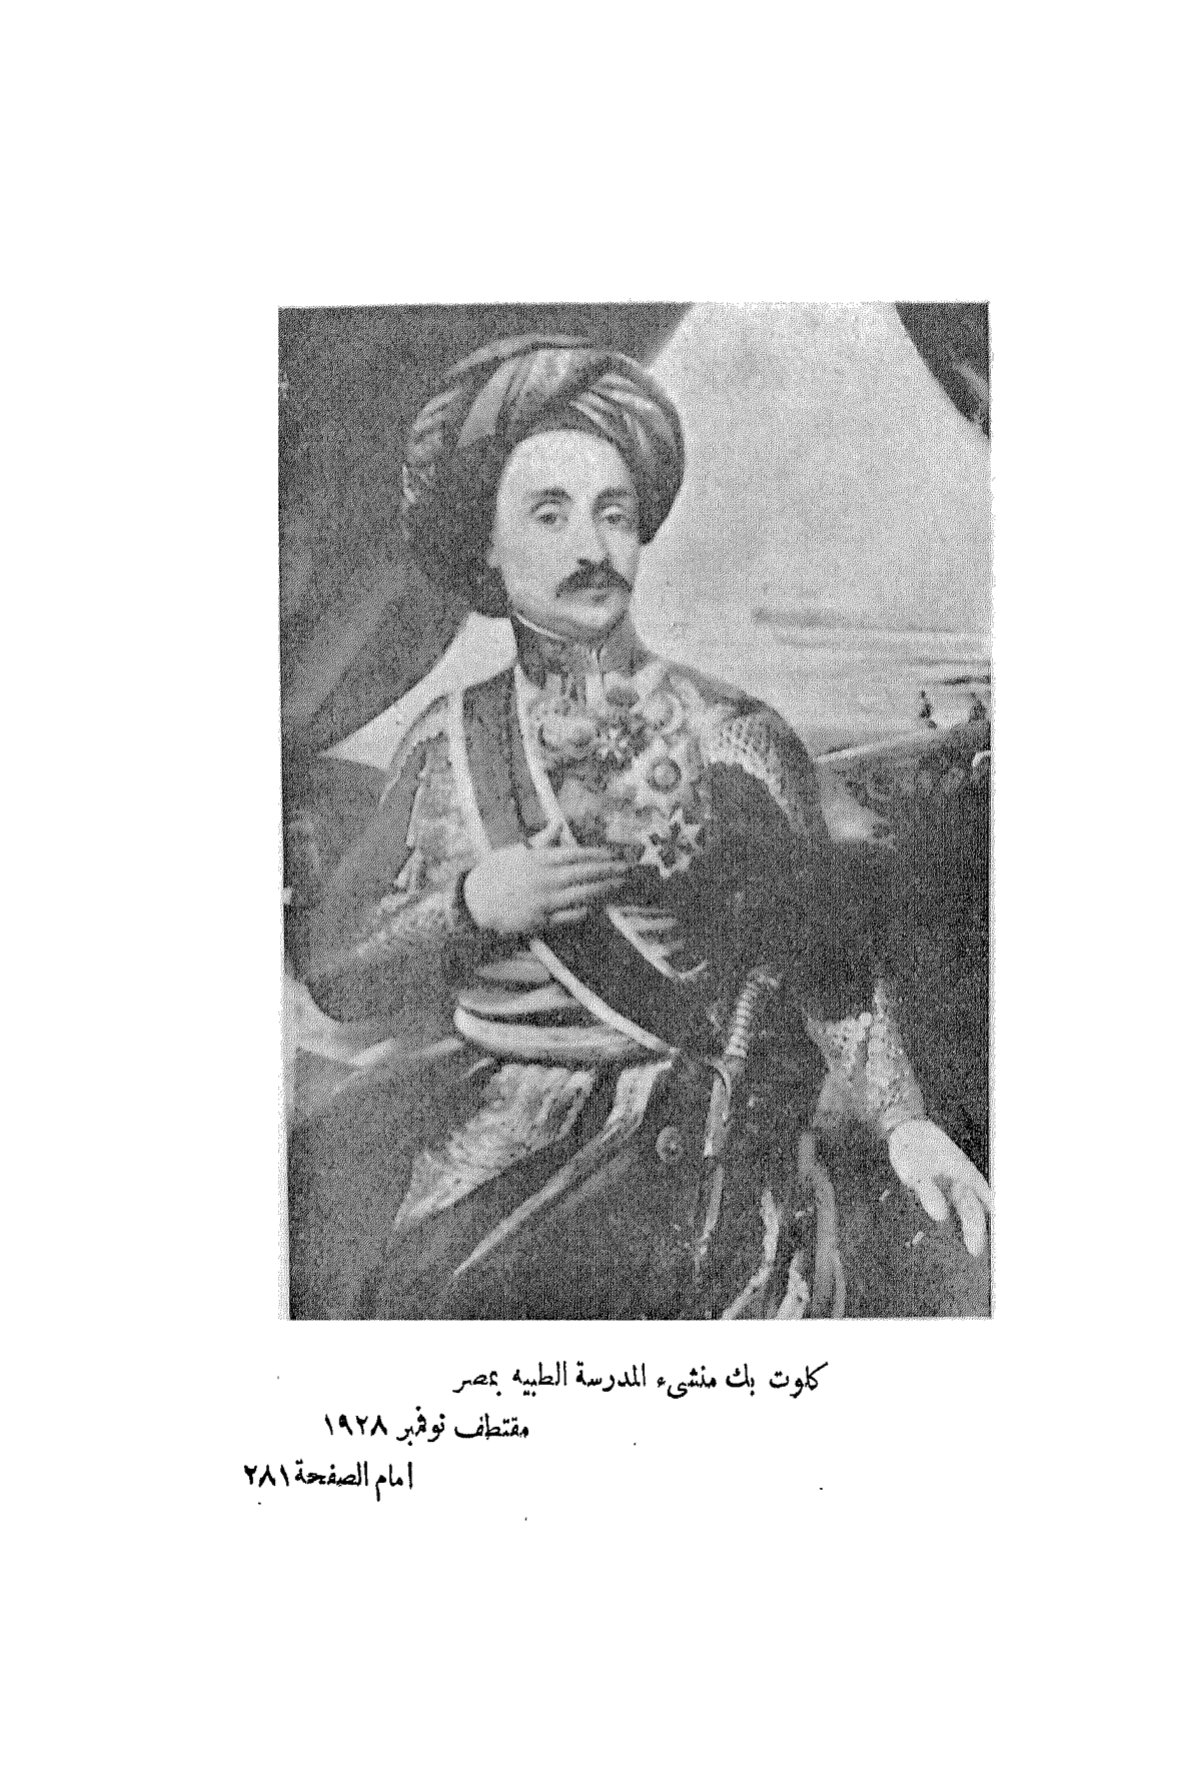 كلوت بك منشىء المدرسة الطبيه بمصر
مقتطف نوفمبر ١٩٢٨
امام الصفحة ٢٨١